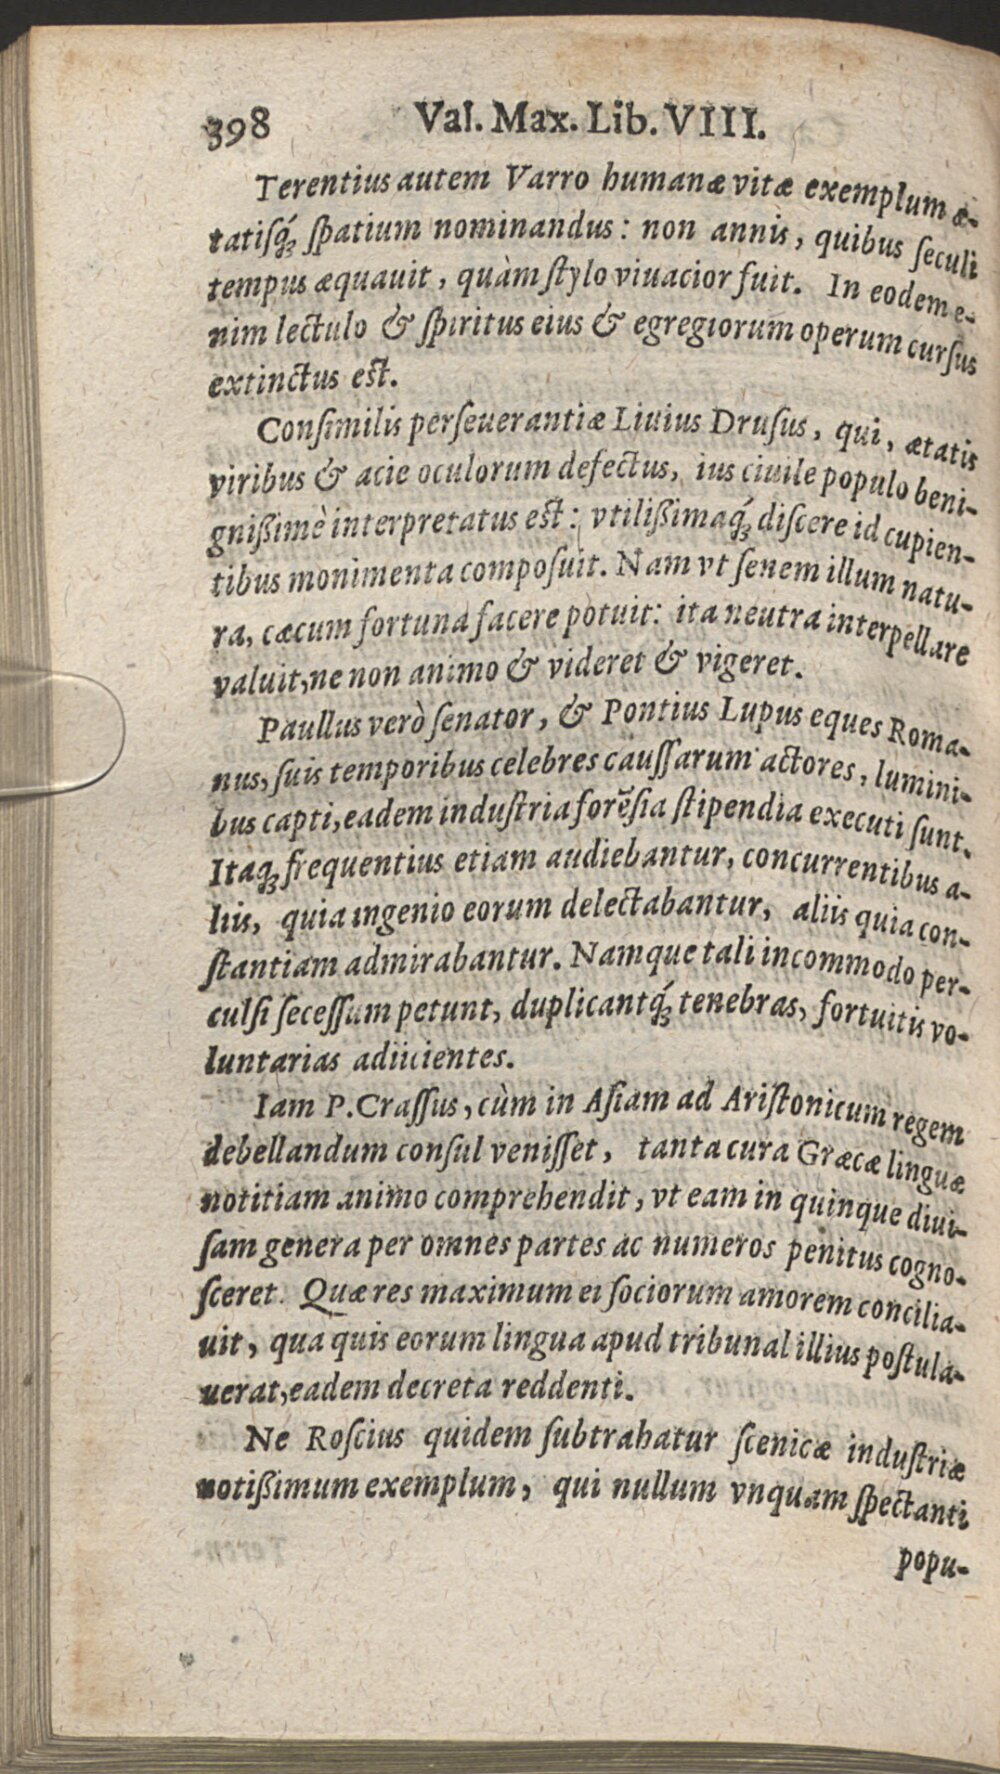 398 Val. Max. Lib. VIII.
Terentius autem Varro humanæ vitæ exemplum æ-
tatisq́ꝫ ſpatium nominandus: non annis, quibus ſeculi
tempus æquauit, quàm ſtylo viuacior fuit. In eodem e-
nim lectulo & ſpiritus eius & egregiorum operum curſus
extinctus eſt.
Conſimilis perſeuerantiæ Liuius Druſus, qui, ætatis
viribus & acie oculorum defectus, ius ciuile populo beni-
gnißimè interpretatus eſt: vtilißimaq́ꝫ diſcere id cupien-
tibus monimenta compoſuit. Nam vt ſenem illum natu-
ra, cæcum fortuna facere potuit: ita neutra interpellare
valuit, ne non animo & videret & vigeret.
Paullus verò ſenator, & Pontius Lupus eques Roma-
nus, ſuis temporibus celebres cauſſarum actores, lumini-
bus capti, eadem induſtria forẽſia ſtipendia executi ſunt.
Itaqꝫ frequentius etiam audiebantur, concurrentibus a-
liis, quia ingenio eorum delectabantur, aliis quia con-
ſtantiam admirabantur. Namque tali incommodo per-
culſi ſeceſſum petunt, duplicantq́ꝫ tenebras, fortuitis vo-
luntarias adiicientes.
Iam P. Craſſus, cùm in Aſiam ad Ariſtonicum regem
debellandum conſul veniſſet, tanta cura Græcæ linguæ
notitiam animo comprehendit, vt eam in quinque diui-
ſam genera per omnes partes ac numeros penitus cogno-
ſceret. Quæ res maximum ei ſociorum amorem concilia-
uit, qua quis eorum lingua apud tribunal illius poſtula-
uerat, eadem decreta reddenti.
Ne Roſcius quidem ſubtrahatur ſcenicæ induſtriæ
notißimum exemplum, qui nullum vnquam ſpectanti
popu-